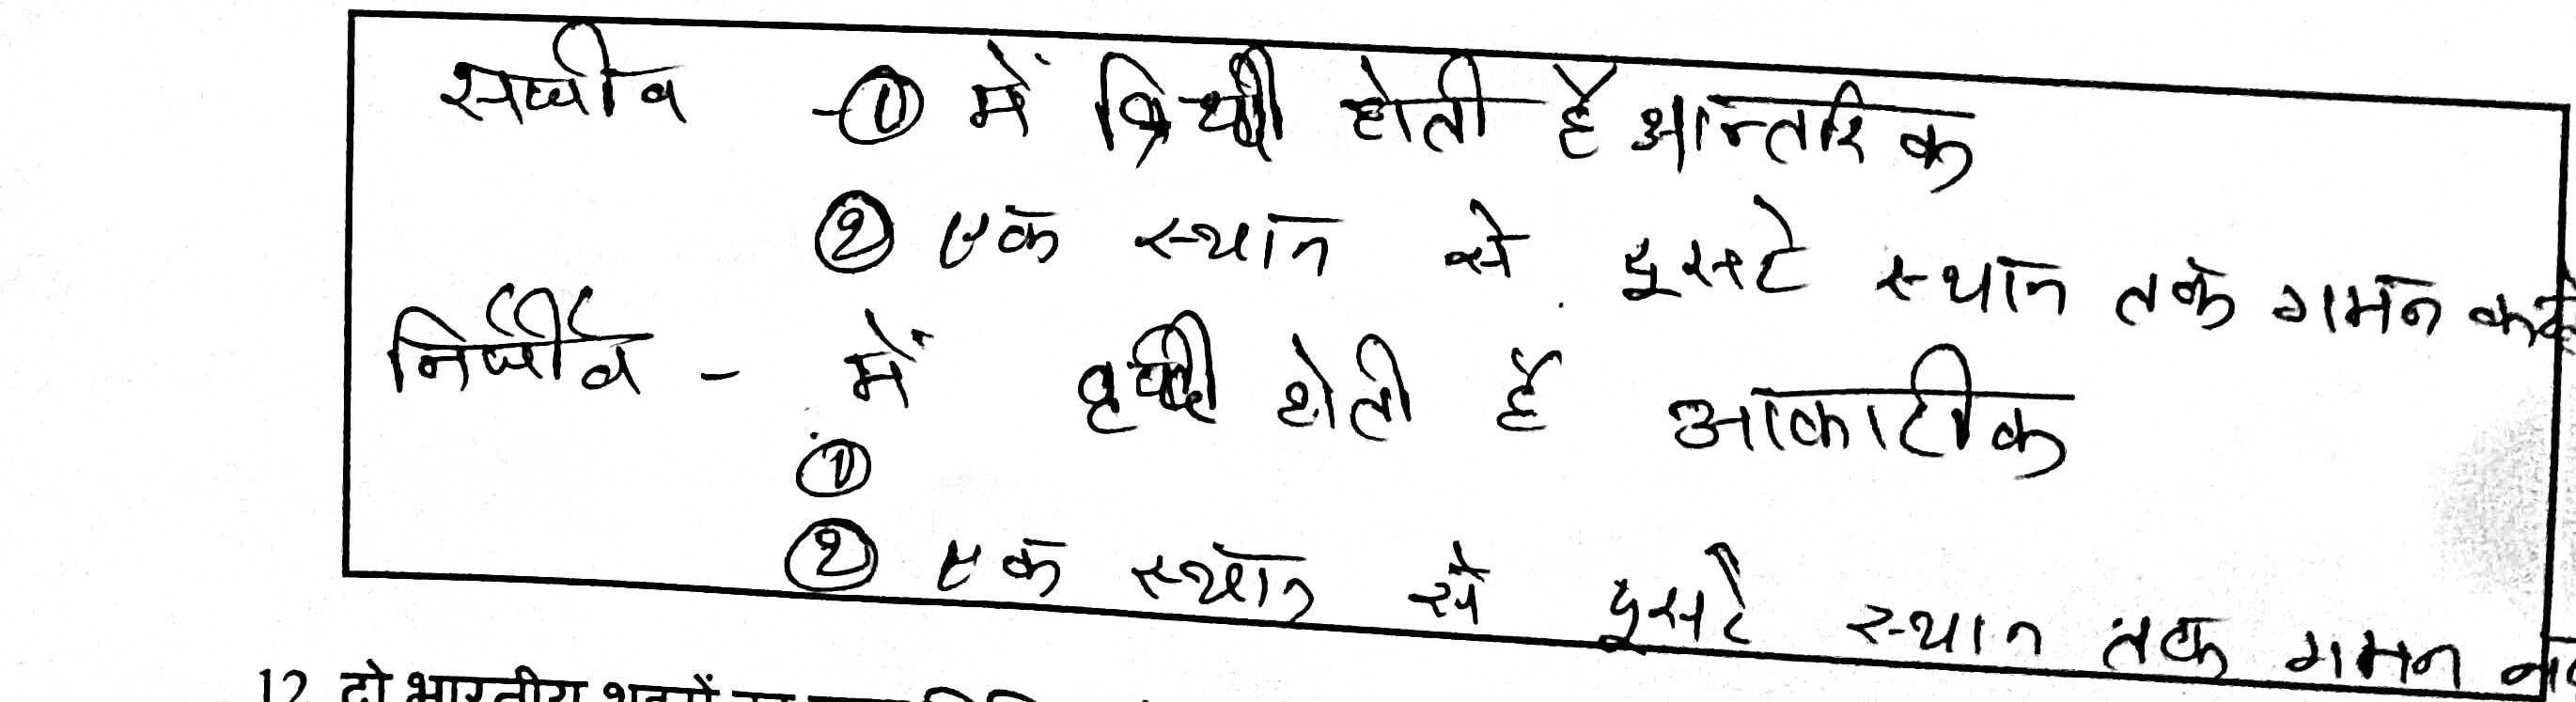 सजीव - ① में वृध्दी होती है आन्तरिक
② एक स्थान से दूसरे स्थान तक गमन
निर्जीव - में वृध्दी होती है आकारीक
①
② एक स्थान से दूसरे स्थान तक गमन
12 दो भारतीय